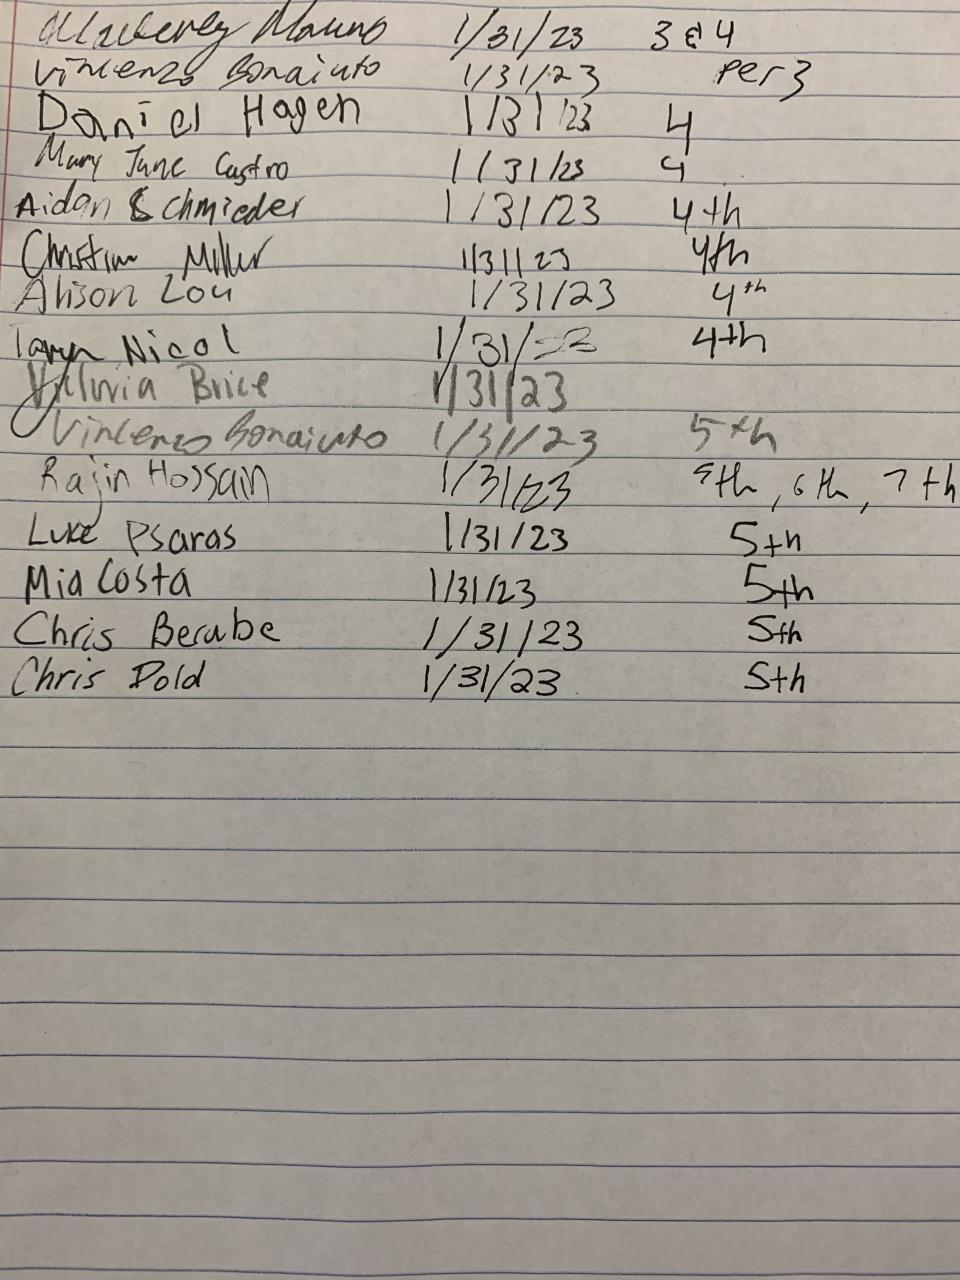 1/31/23 3 & 4
Vincenzo Bonaiuto 1/31/23 per 3
Daniel Hagen 1/31/23 4
Mary Jane Castro 1/31/23 4
Aidan Schmieder 1/31/23 4th
Christian Miller 1/31/23 4th
Alison Lou 1/31/23 4th
Taryn Nicol 1/31/23 4th
Brice 1/31/23
Vincenzo Bonaiuto 1/31/23 5th
Rajin Hossain 1/31/23 5th, 6th, 7th
Luke Psaras 1/31/23 5th
Mia Costa 1/31/23 5th
Chris Berube 1/31/23 5th
Chris Dold 1/31/23 5th